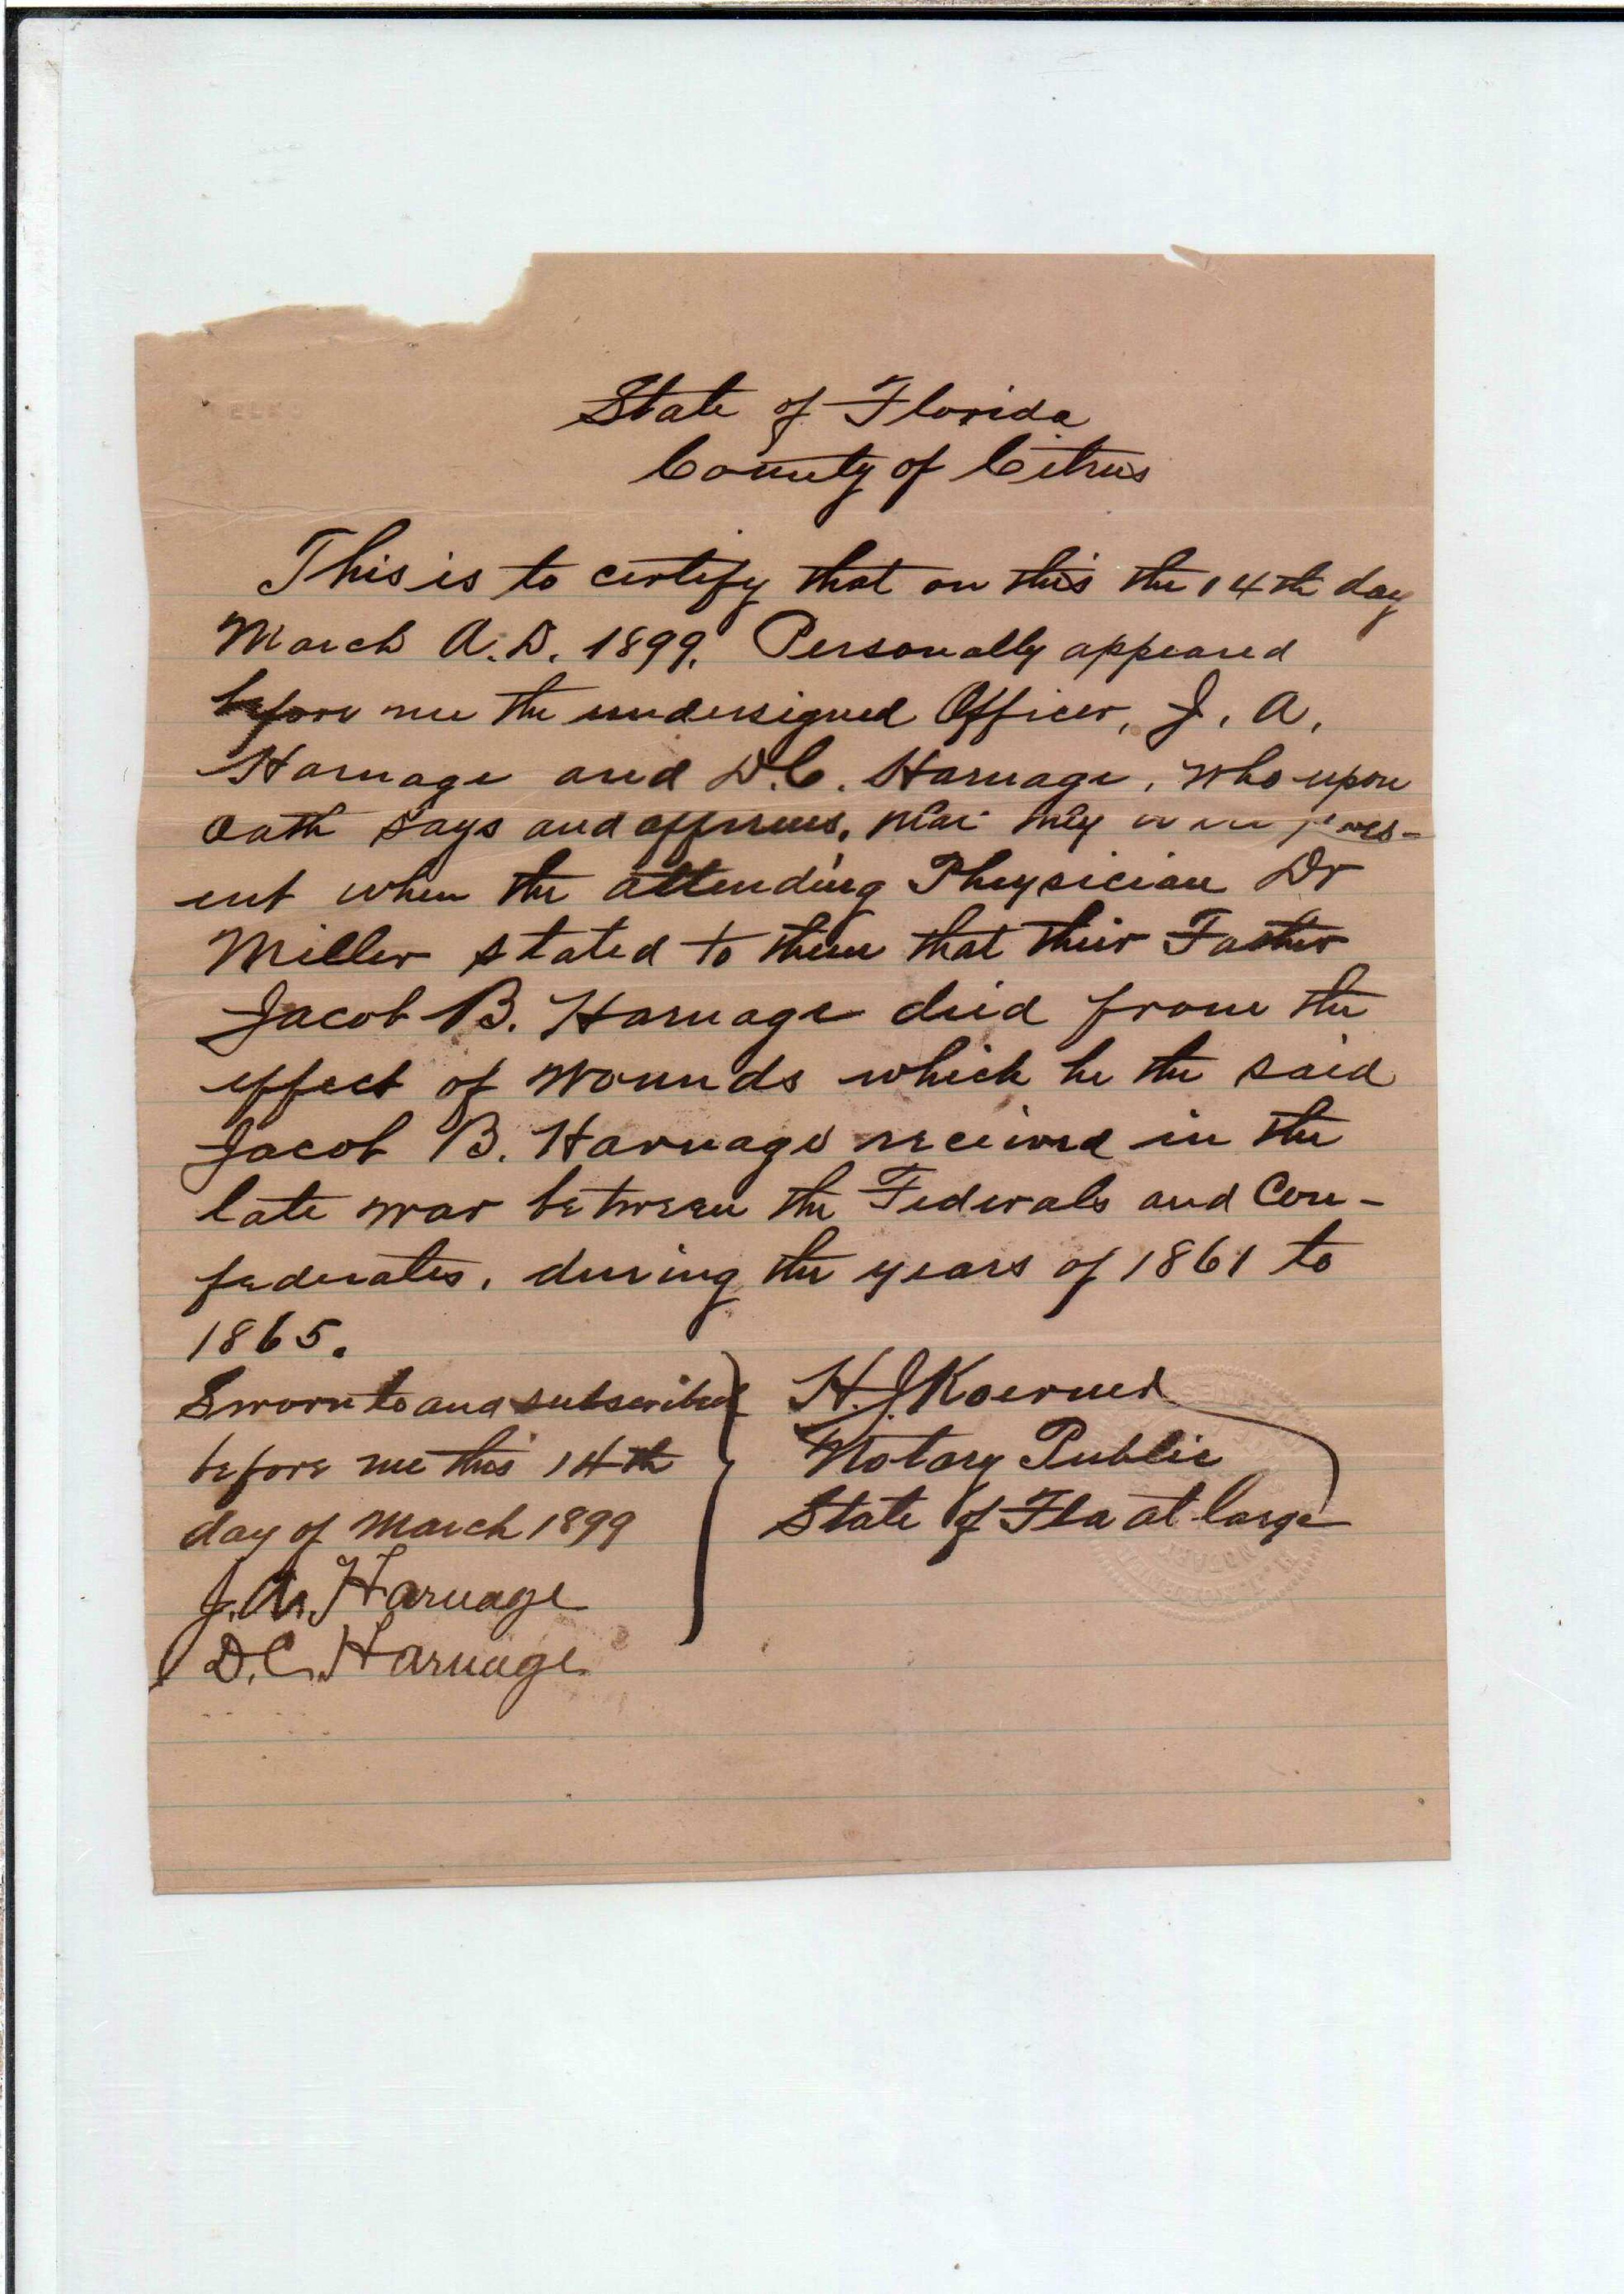 State of Florida
County of Citrus
This is to certify that on this the 14th day
March A.D. 1899. Personally appeared
before me the undersigned Officer, J. A.
Harnage and D.C. Harnage, who upon
Oath says and affirms, that they were pres-
ent when the attending Physician Dr
Miller stated to them that their Father
Jacob B. Harnage died from the
effect of wounds which he the said
Jacob B. Harnage received in the
late war between the Federals and Con-
federates, during the years of 1861 to
1865.
Sworn to and subscribed
before me this 14th
day of March 1899
J. A. Harnage
D.C. Harnage
H. J. Koerner
Notary Public
State of Fla at large